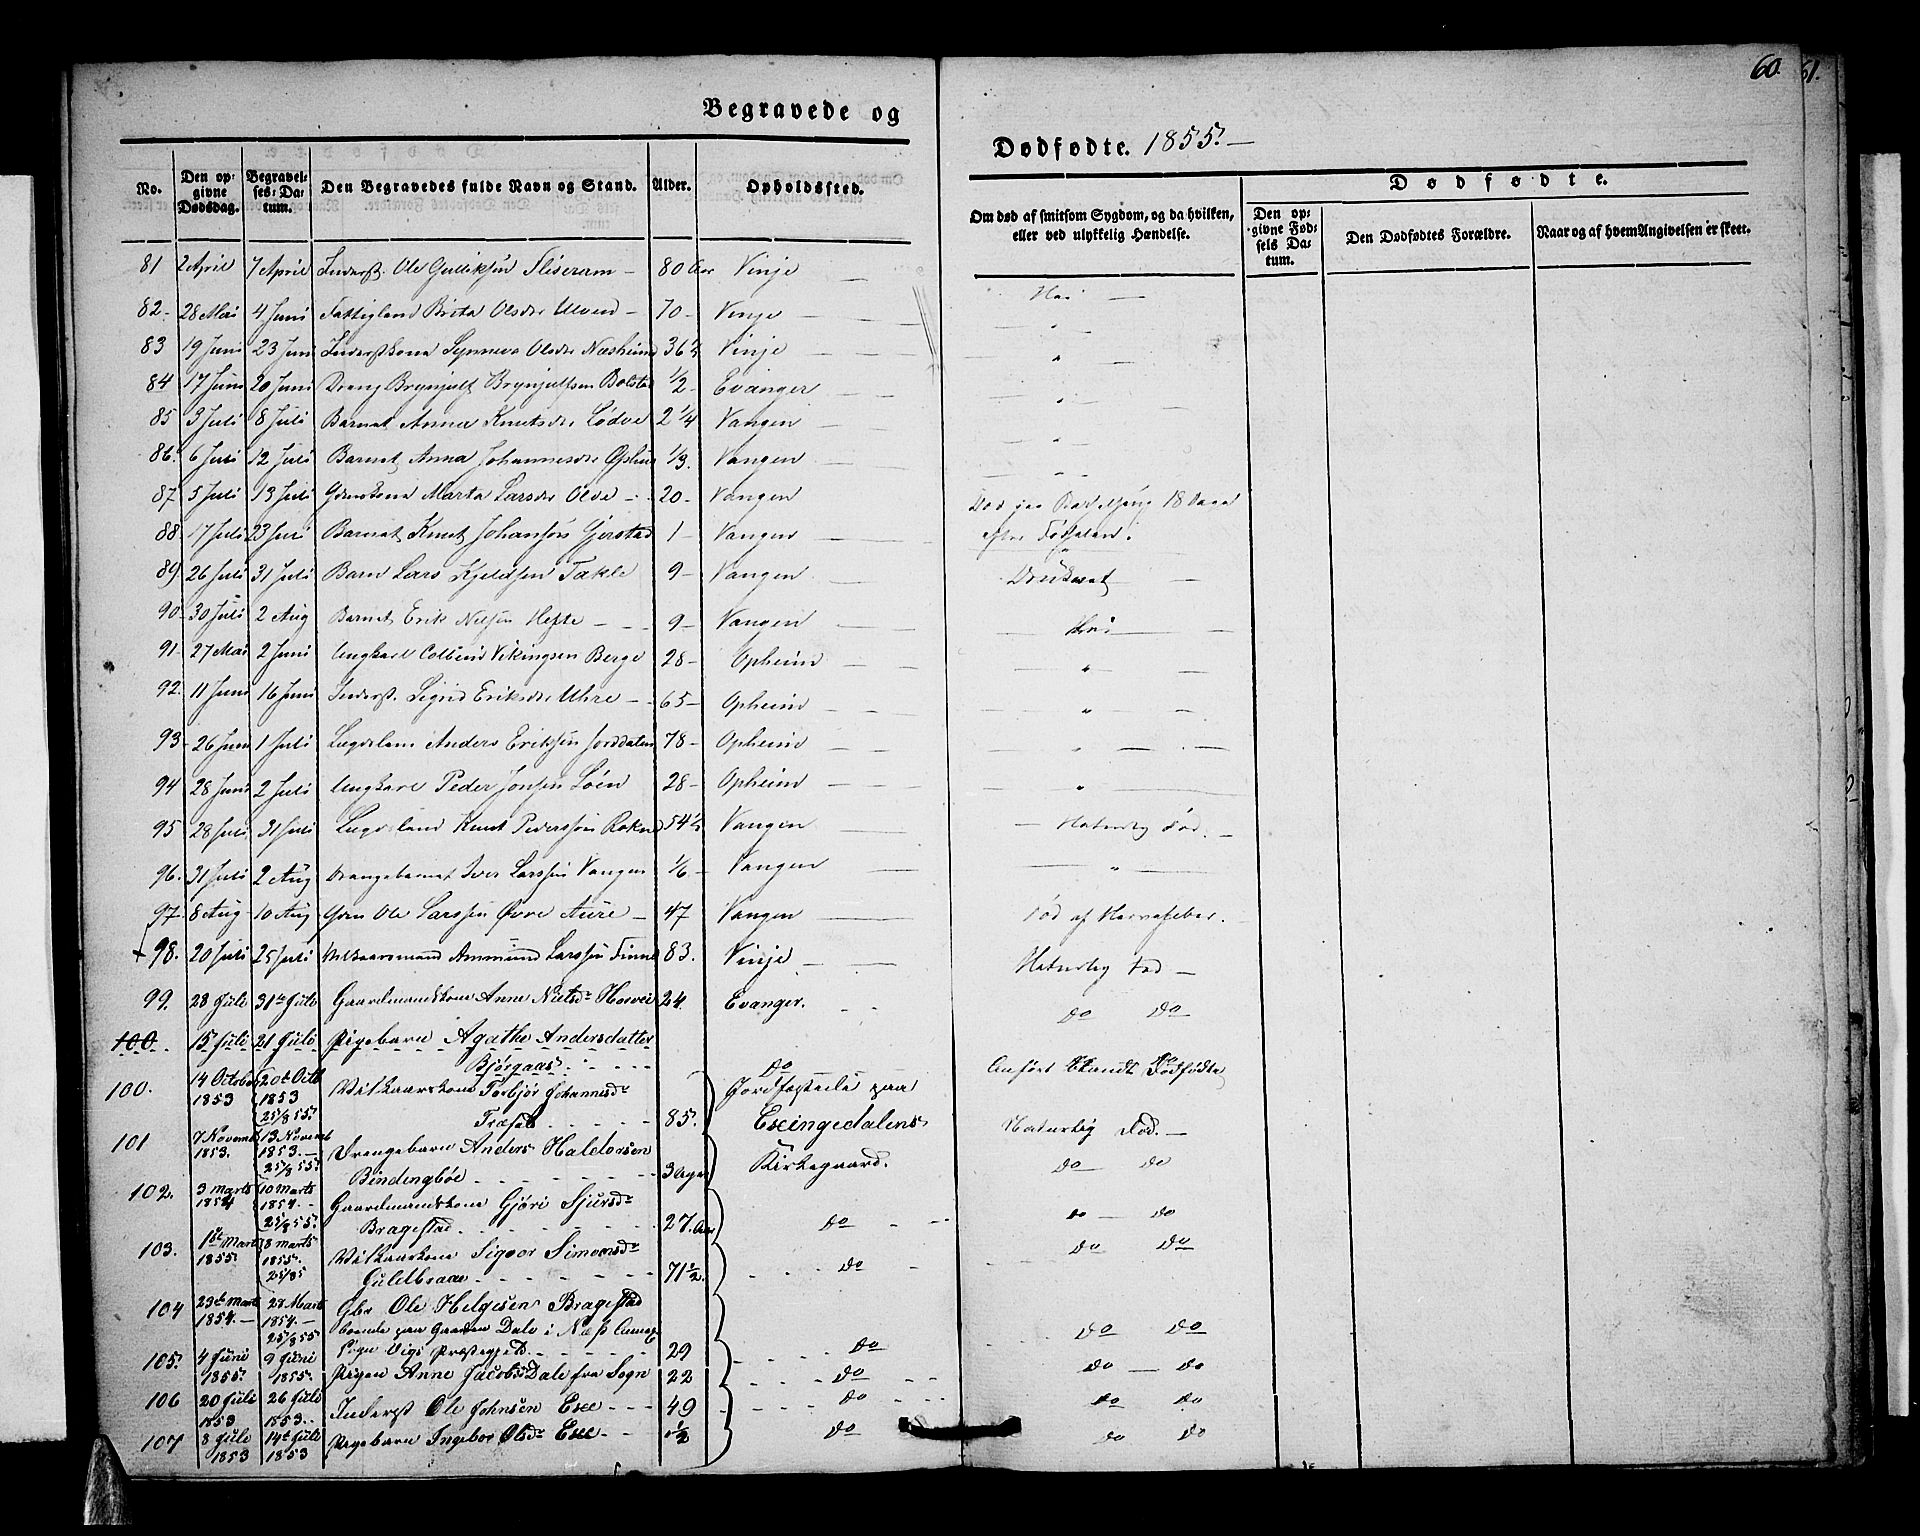 60. 61.
Begravede og
Dødfødte. 1855.
No. Den opgivne Dødsdag. Begravelses-Datum. Den Begravedes fulde Navn og Stand. Alder. Opholdssted.
Om død af smitsom Sygdom, og da hvilken, eller ved ulykkelig Hændelse.
Dødfødte.
Den opgivne Fødsels Datum. Den Dødfødtes Forældre. Naar og af hvem Angivelsen er skeet.
81 2 April 7 April Inderst. Ole Gulliksen 80 Aar Vinje
82 28 Mai 4 Juni Fattiglem Brita Olsdr Ulvend 70 Vinje "
83 19 Juni 23 Juni Inderstkona Synneva Olsdr Næsheim 36 1/2 Vinje "
84 17 Juni 20 Juni Dreng Brynjulf Brynjulfsen Bolstad 1/2 Evanger "
85 3 Juli 8 Juli Barnet Anna Knutsdr Lødve 2 1/4 Vangen "
86. 6 Juli 12 Juli Barnet Anna Johannesdr 1/3. Vangen "
87 5 Juli 13 Juli Gdmskona Marta Larsdr Olde 20 Vangen Død paa Barselseng 18 Dage
88 17 Juli 23 Juli Barnet Knut Johansøn Gjerstad 1 Vangen efter Fødselen.
89 26 Juli 31 Juli Barn Lars Kjeldsen Takle 9 Vangen Druknet
90 30 Juli 2 Aug Barnet Erik Nilsen Hefte 9 Vangen Nei
91 27 Mai 2 Juni Ungkarl Colbein Vikingsen Berge 28 Opheim "
92. 11 Juni 16 Juni Inderst. Sigrid Eriksdr Uhre 65 Opheim "
93 26 Juni 1 Juli Lægdslem Anders Eriksen Jorddalen 78 Opheim "
94 28 Juni 2 Juli Ungkarl Peder Jonsen Løen 28 Opheim "
95 28 Juli 31 Juli Lægdslem Knut Pedersen Rokne 54 1/2 Vangen Naturlig Død.
96. 31 Juli 2 Aug Drangebarnet Iver Larssen Vangen 1/6 Vangen "
97. 8 Aug 10 Aug Gdm Ole Larssen Øvre Aure 47 Vangen Død af Nervefeber.
98. 20 Juli 25 Juli Vilkaarsmand Ammund Larssen Finne 83. Vinje Naturlig Død
99. 28 Juli 31te Juli Gaardmandskone Anne Nielsdr Horvei 24. Evanger. do do
100. 15 Juli 21 Juli Pigebarn Agathe Andersdatter
Bjørgaas. do Anført blandt Dødfødte
100. 14 October 1853 20de Octb 1853 25/8 55. Vilkaarskone Torbjør Johannesdr
Træfald 85. Jordfæstede paa Exingedalens Kirkegaard. Naturlig Død.
101 7 Novemb 1853. 13 Novemb 1853. 25/8 55. Drengebarn Anders Haldorsen
Bindingbøe 3 Uger do do
102. 3 Marts 1854 10 Marts 1854. 25/8 55. Gaardmandskone Gjøri Sjursdr
Bragestad. 27. Aar do do do
103. 1ste Marts 1855. 8 Marts 1855. 25/8 5 Vilkaarkone Sigvor Simonsdr
Guldbraae 71 1/2. do do do
104 23de Marts 1854. 28 Marts 1854. 25/8 55 Gbr Ole Helgesen Bragestad
boende paa Gaarden Dale i Næss Annex
Sogn Vigs Præstegjeld. 29 do do do
105. 4 Juni 1855. 9 Juni 1855. Pigen Anne Jacobsd Dale fra Sogn 22 do do do
106 20 Juli 1853 26 Juli 1853. Inderst Ole Johnsen Exe 49 do do do
107 8 Juli 1853 14de Juli 1853 Pigebarn Ingebor Olsdr Exe 1/2 do do do